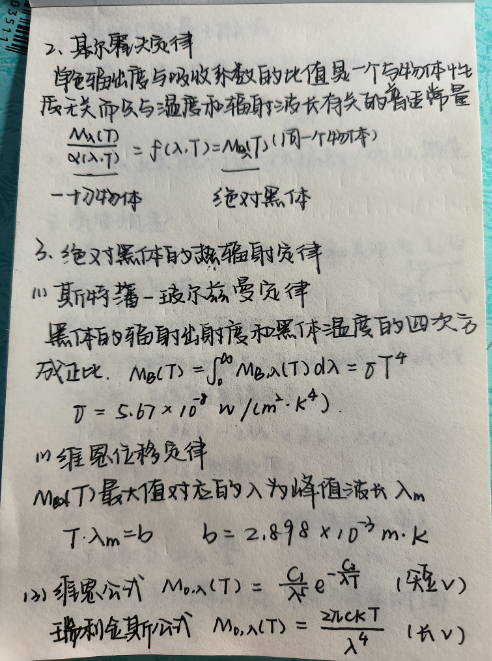 2、基尔霍夫定律
单色辐出度与吸收系数的比值是一个与物体性
质无关而只与温度和辐射波长有关的普适常量
Mλ(T)/α(λ,T) = f(λ,T) = MBλ(T) (同一个物体)
一切物体 绝对黑体
3、绝对黑体的热辐射定律
(1) 斯特藩-玻尔兹曼定律
黑体的辐射出射度和黑体温度的四次方
成正比. MB(T) = ∫₀^∞ MB,λ(T) dλ = σT⁴
σ = 5.67 × 10⁻⁸ W/(m²·K⁴).
(1) 维恩位移定律
MBλ(T) 最大值对应的λ为峰值波长 λm
T·λm = b b = 2.898 × 10⁻³ m·K
(3) 维恩公式 M₀,λ(T) = C₁/λ⁵ e^(-C₂/λT) (短√)
瑞利金斯公式 M₀,λ(T) = 2πCKT/λ⁴ (长√)